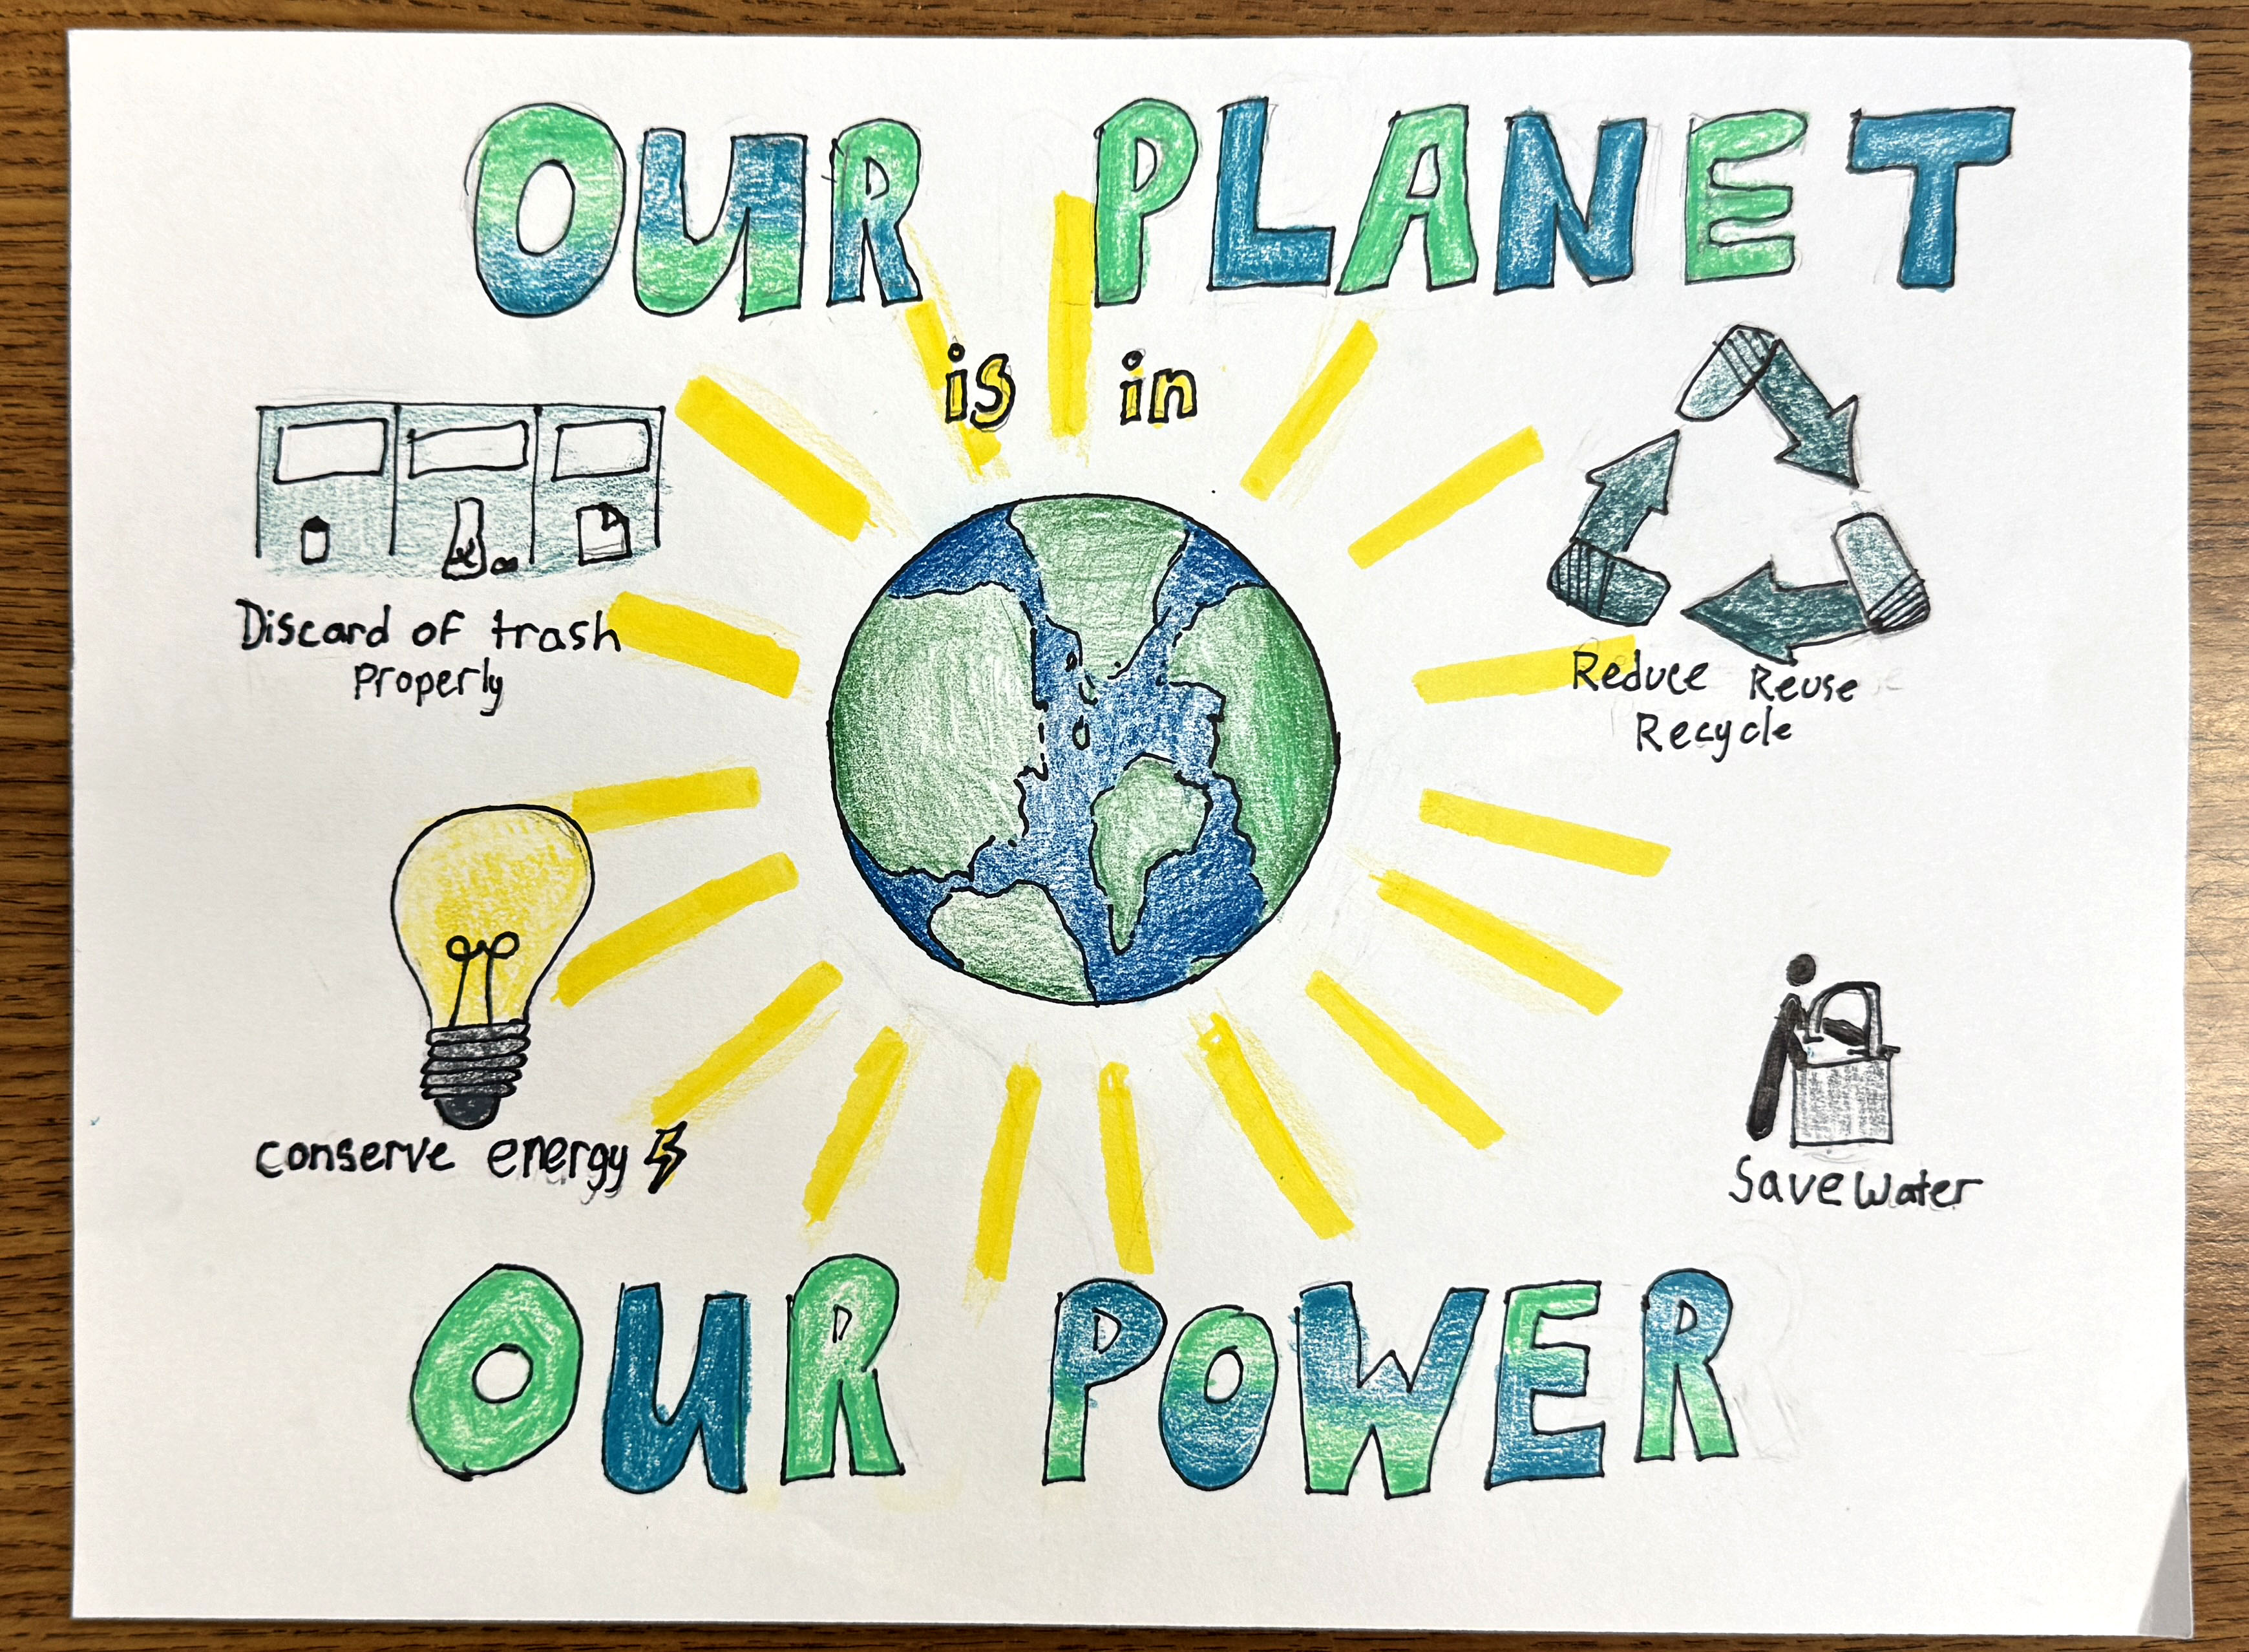 OUR PLANET
is in
Discard of trash
Properly
Reduce Reuse
Recycle
conserve energy
Save Water
OUR POWER